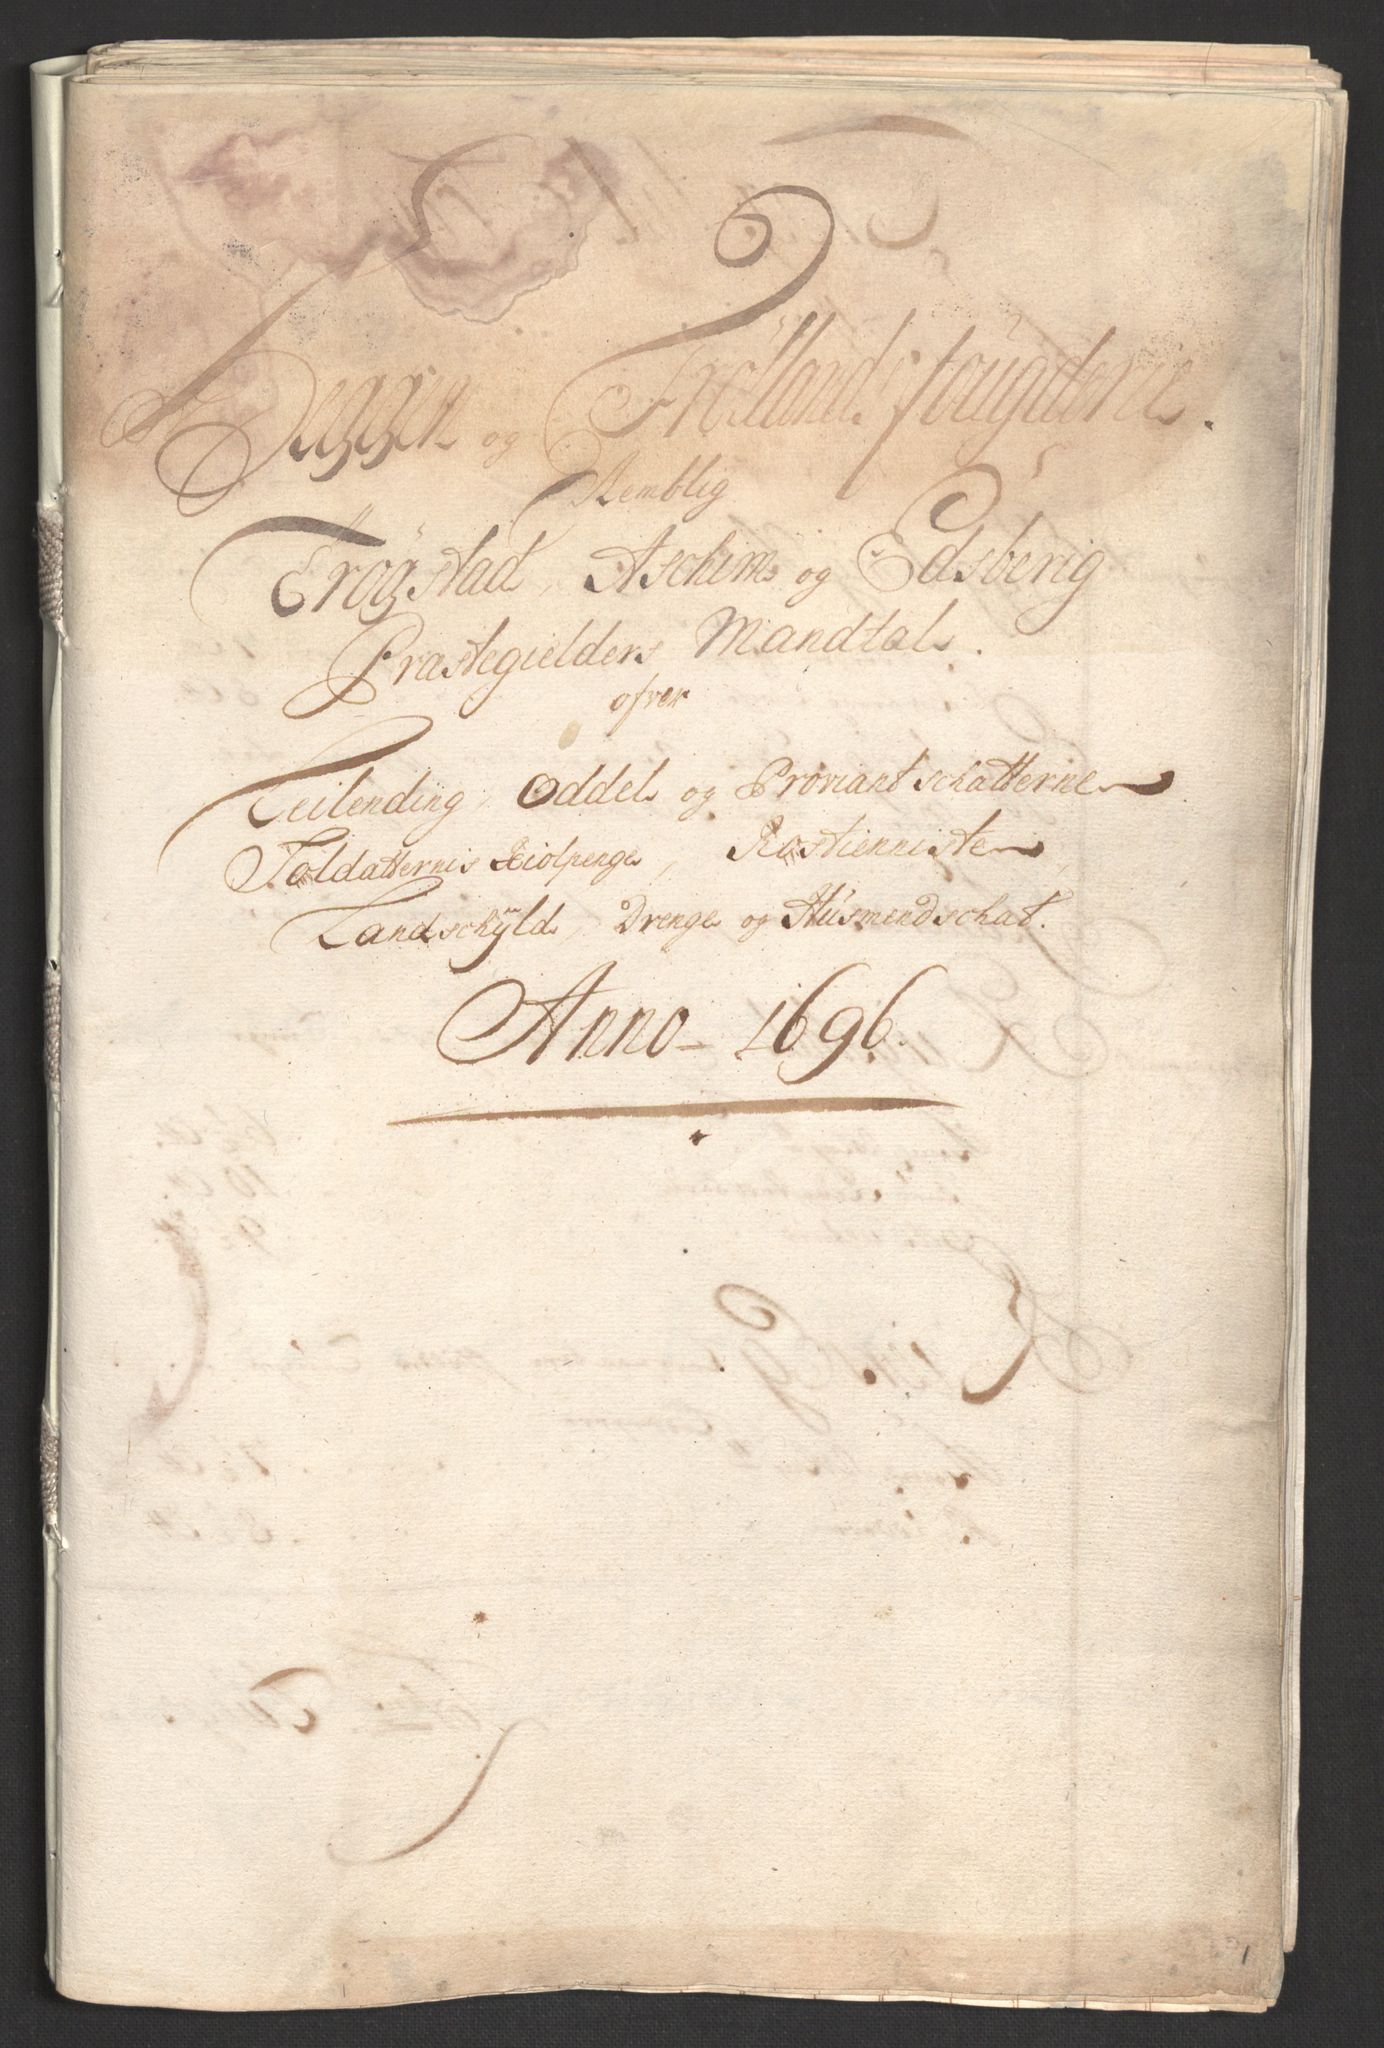 Heggen og Frøllands fougderie.
Nemblig
Trögstad, Aschims og Edsberig
Præstegielders Mandtal.
ofver
Leilending, Oddels og Proviantschatterne
Soldatternis Hiolpenge, Rostienniste,
Landschÿld, Drenge og Husmendschat.
Anno - 1696.
1